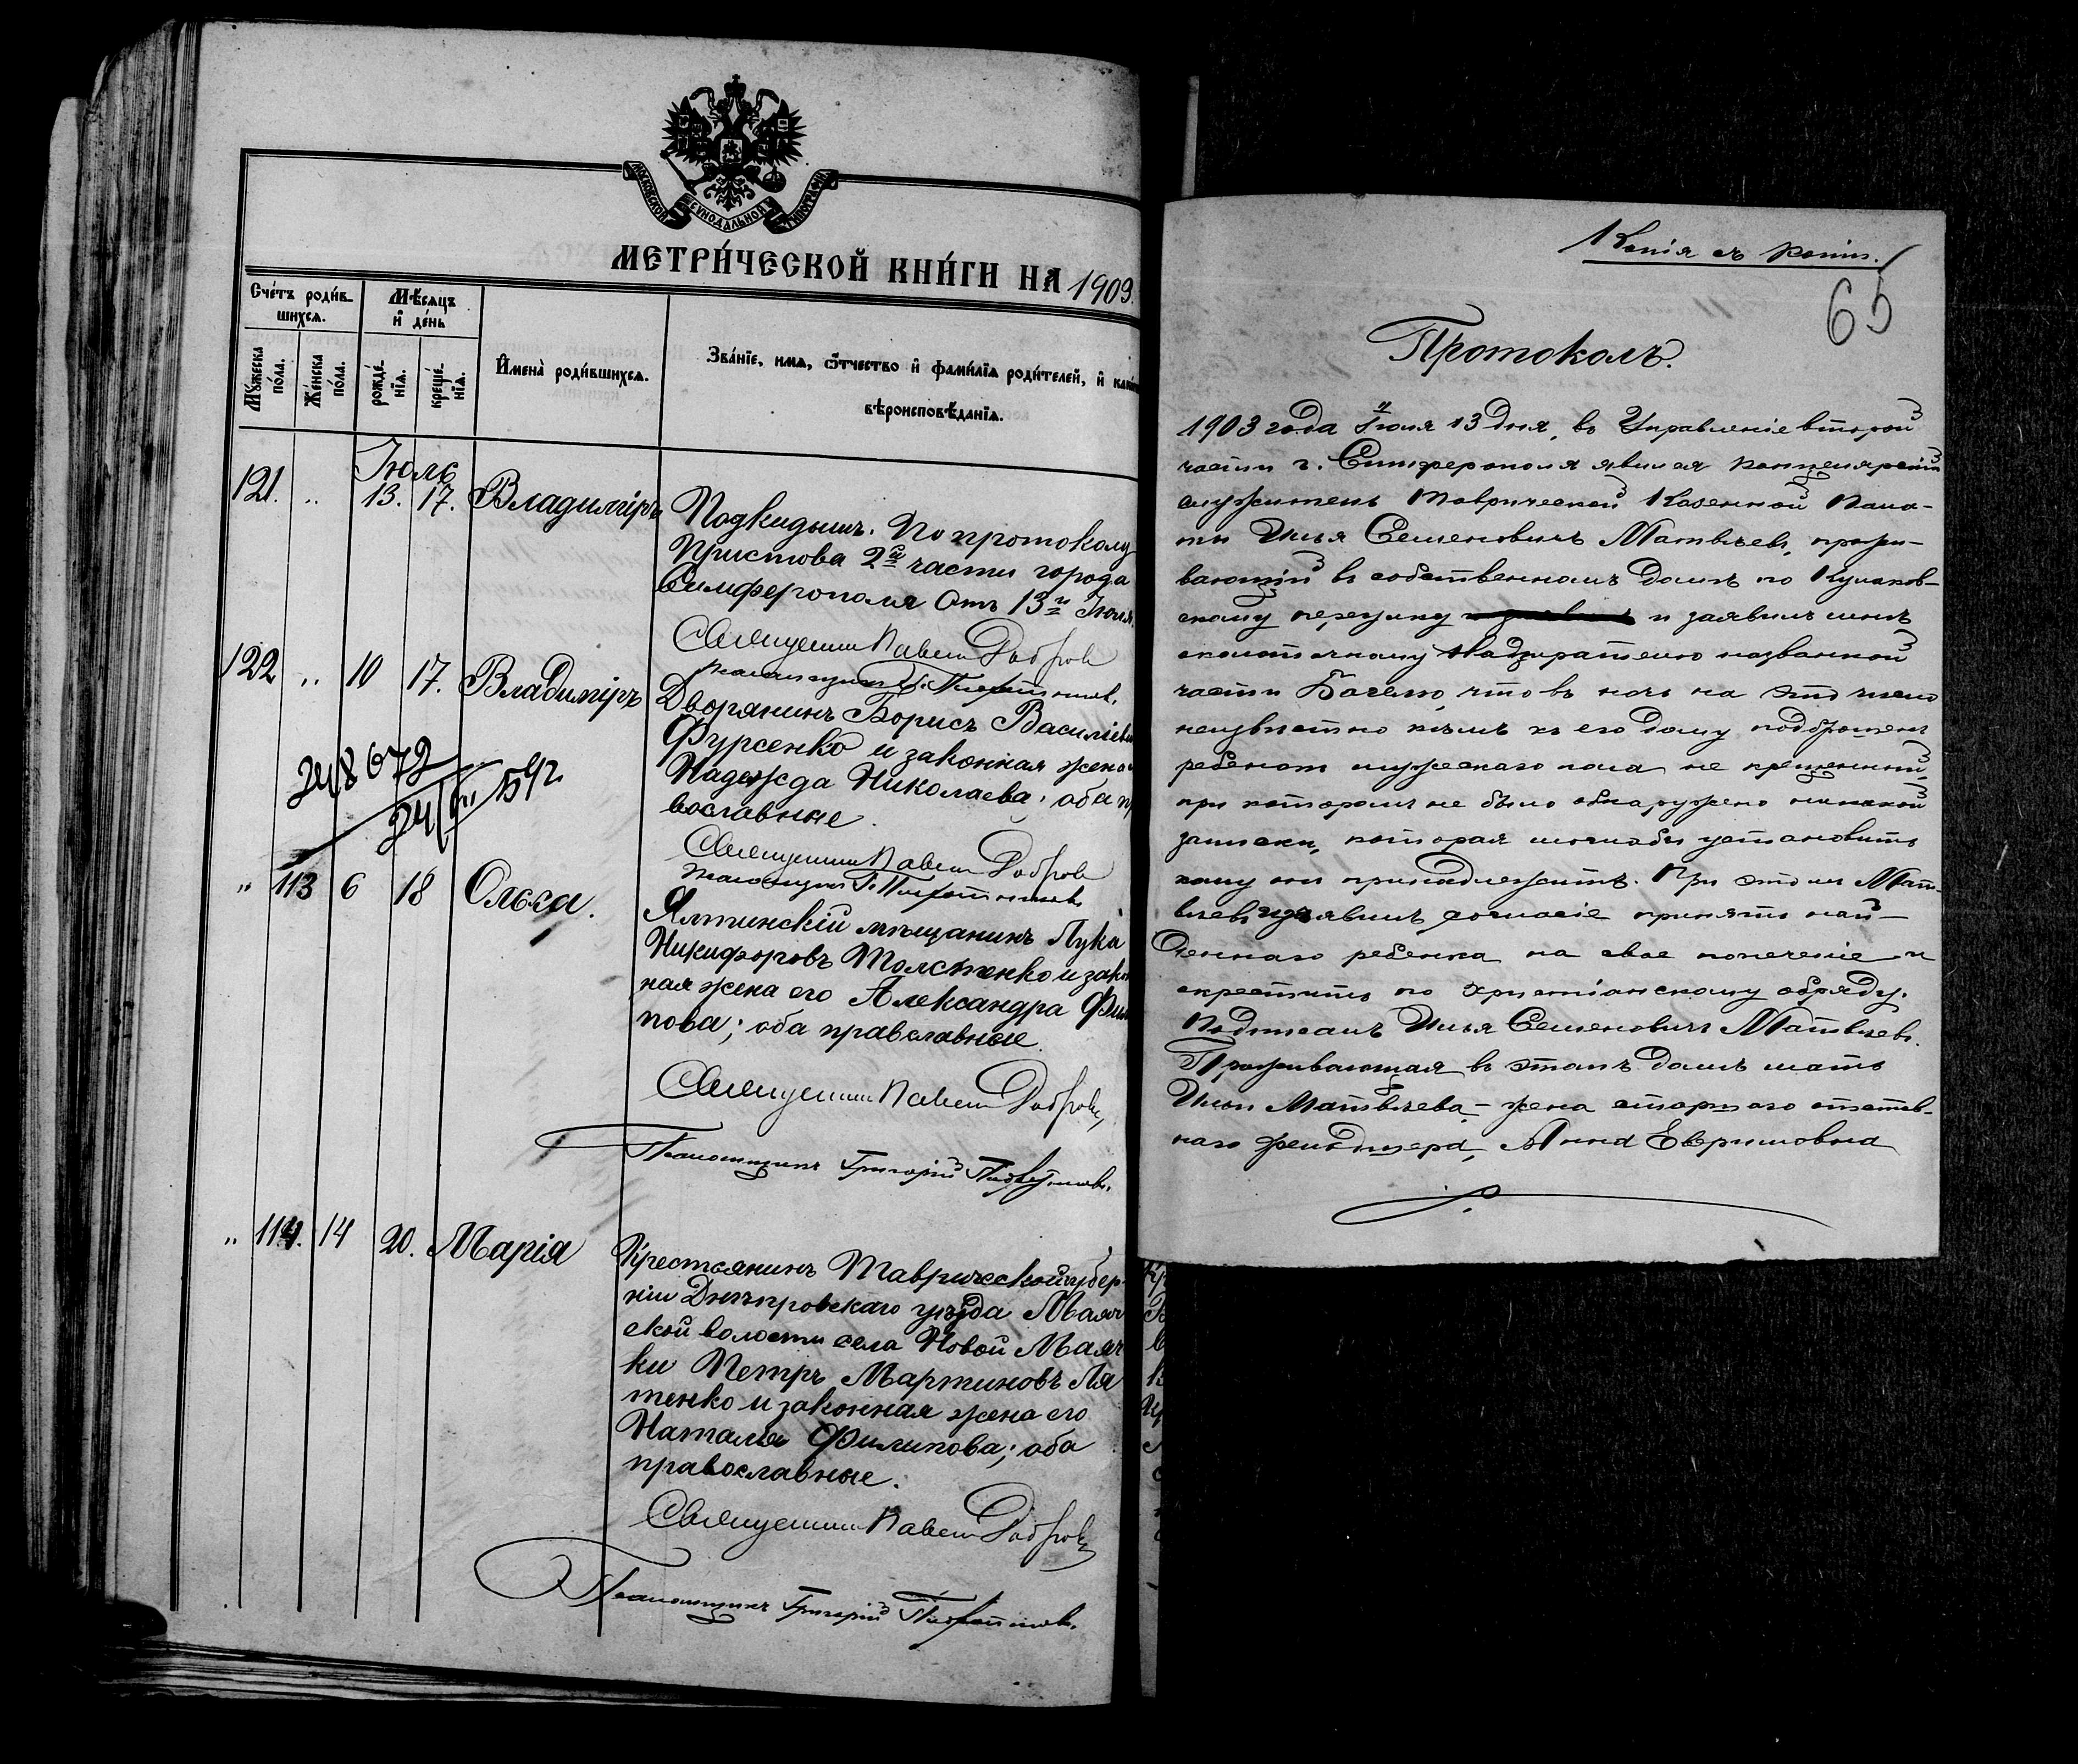 МОСКОВСКОЙ СУНОДАЛЬНОЙ ТИПОГРАФІИ
МЕТРИ́ЧЕСКОЙ КНИ́ГИ НА 1903.
Сче́тъ роди́в-
шихсѧ.
Мѣ́сѧцъ
и҆ де́нь
Мꙋ́жеска
по́ла.
Же́нска
по́ла.
рожде́-
нїѧ.
креще́-
нїѧ.
И҆мена̀ роди́вшихсѧ.
Зва́нїе, имѧ, ѻ҆́тчество и҆ фами́лїѧ роди́телей, и҆
вѣроисповѣ́данїѧ.
Іюль
121. „ 13. 17. Владиміръ
Подкидышъ. По протоколу
Пристова 2й части города
Симферополя отъ 13го Іюля.
Священникъ Павелъ Добровъ
Псаломщикъ Г.
122 „ 10 17. Владиміръ
Дворянинъ Борисъ Василіев
Фурсенко и законная жена
Надежда Николаева; оба п
вославные.
Священникъ Павелъ Добровъ
Псаломщикъ Г.
248072
24/VIII 1592
„ 113 6 18 Ольга.
Ялтинскій мѣщанинъ Лука
Никифоровъ Толстенко и закон
ная жена его Александра Фили
пова; оба православные.
Священникъ Павелъ Добровъ
Псаломщикъ Григорій
„ 114. 14 20. Марія
Крестьянинъ Таврической губер-
ніи Днѣпровскаго уѣзда Маяч
ской волости села Новой Маяч
ки Петръ Мартиновъ Ля
тенко и законная жена его
Наталія Филипова; оба
православные.
Священникъ Павелъ Добровъ
Псаломщикъ Григорій
Копія съ копіи.
65
Протоколъ.
1903 года Іюля 13 дня, въ Управленіе второй
части г. Симферополя явился канцелярскій
служитель Таврической Казенной Пала-
ты Илья Семеновичъ Матвѣевъ, прожи-
вающій въ собственномъ домѣ по Кулаков-
скому переулку и заявилъ мнѣ
околоточному надзирателю названной
части, что въ ночь на это число
неизвѣстно кѣмъ къ его дому подброшенъ
ребенокъ мужескаго пола не крещенный,
при которомъ не было обнаружено никакой
записки, которая могла бы установить
кому онъ принадлежитъ. При этомъ Мат-
вѣевъ изъявилъ согласіе принять най-
деннаго ребенка на свое попеченіе и
окрестить по христіанскому обряду.
Подписалъ Илья Семеновичъ Матвѣевъ.
Проживающая въ этомъ домѣ мать
Ильи Матвѣева – жена отстав-
наго фельдшера, Анна Ефримовна